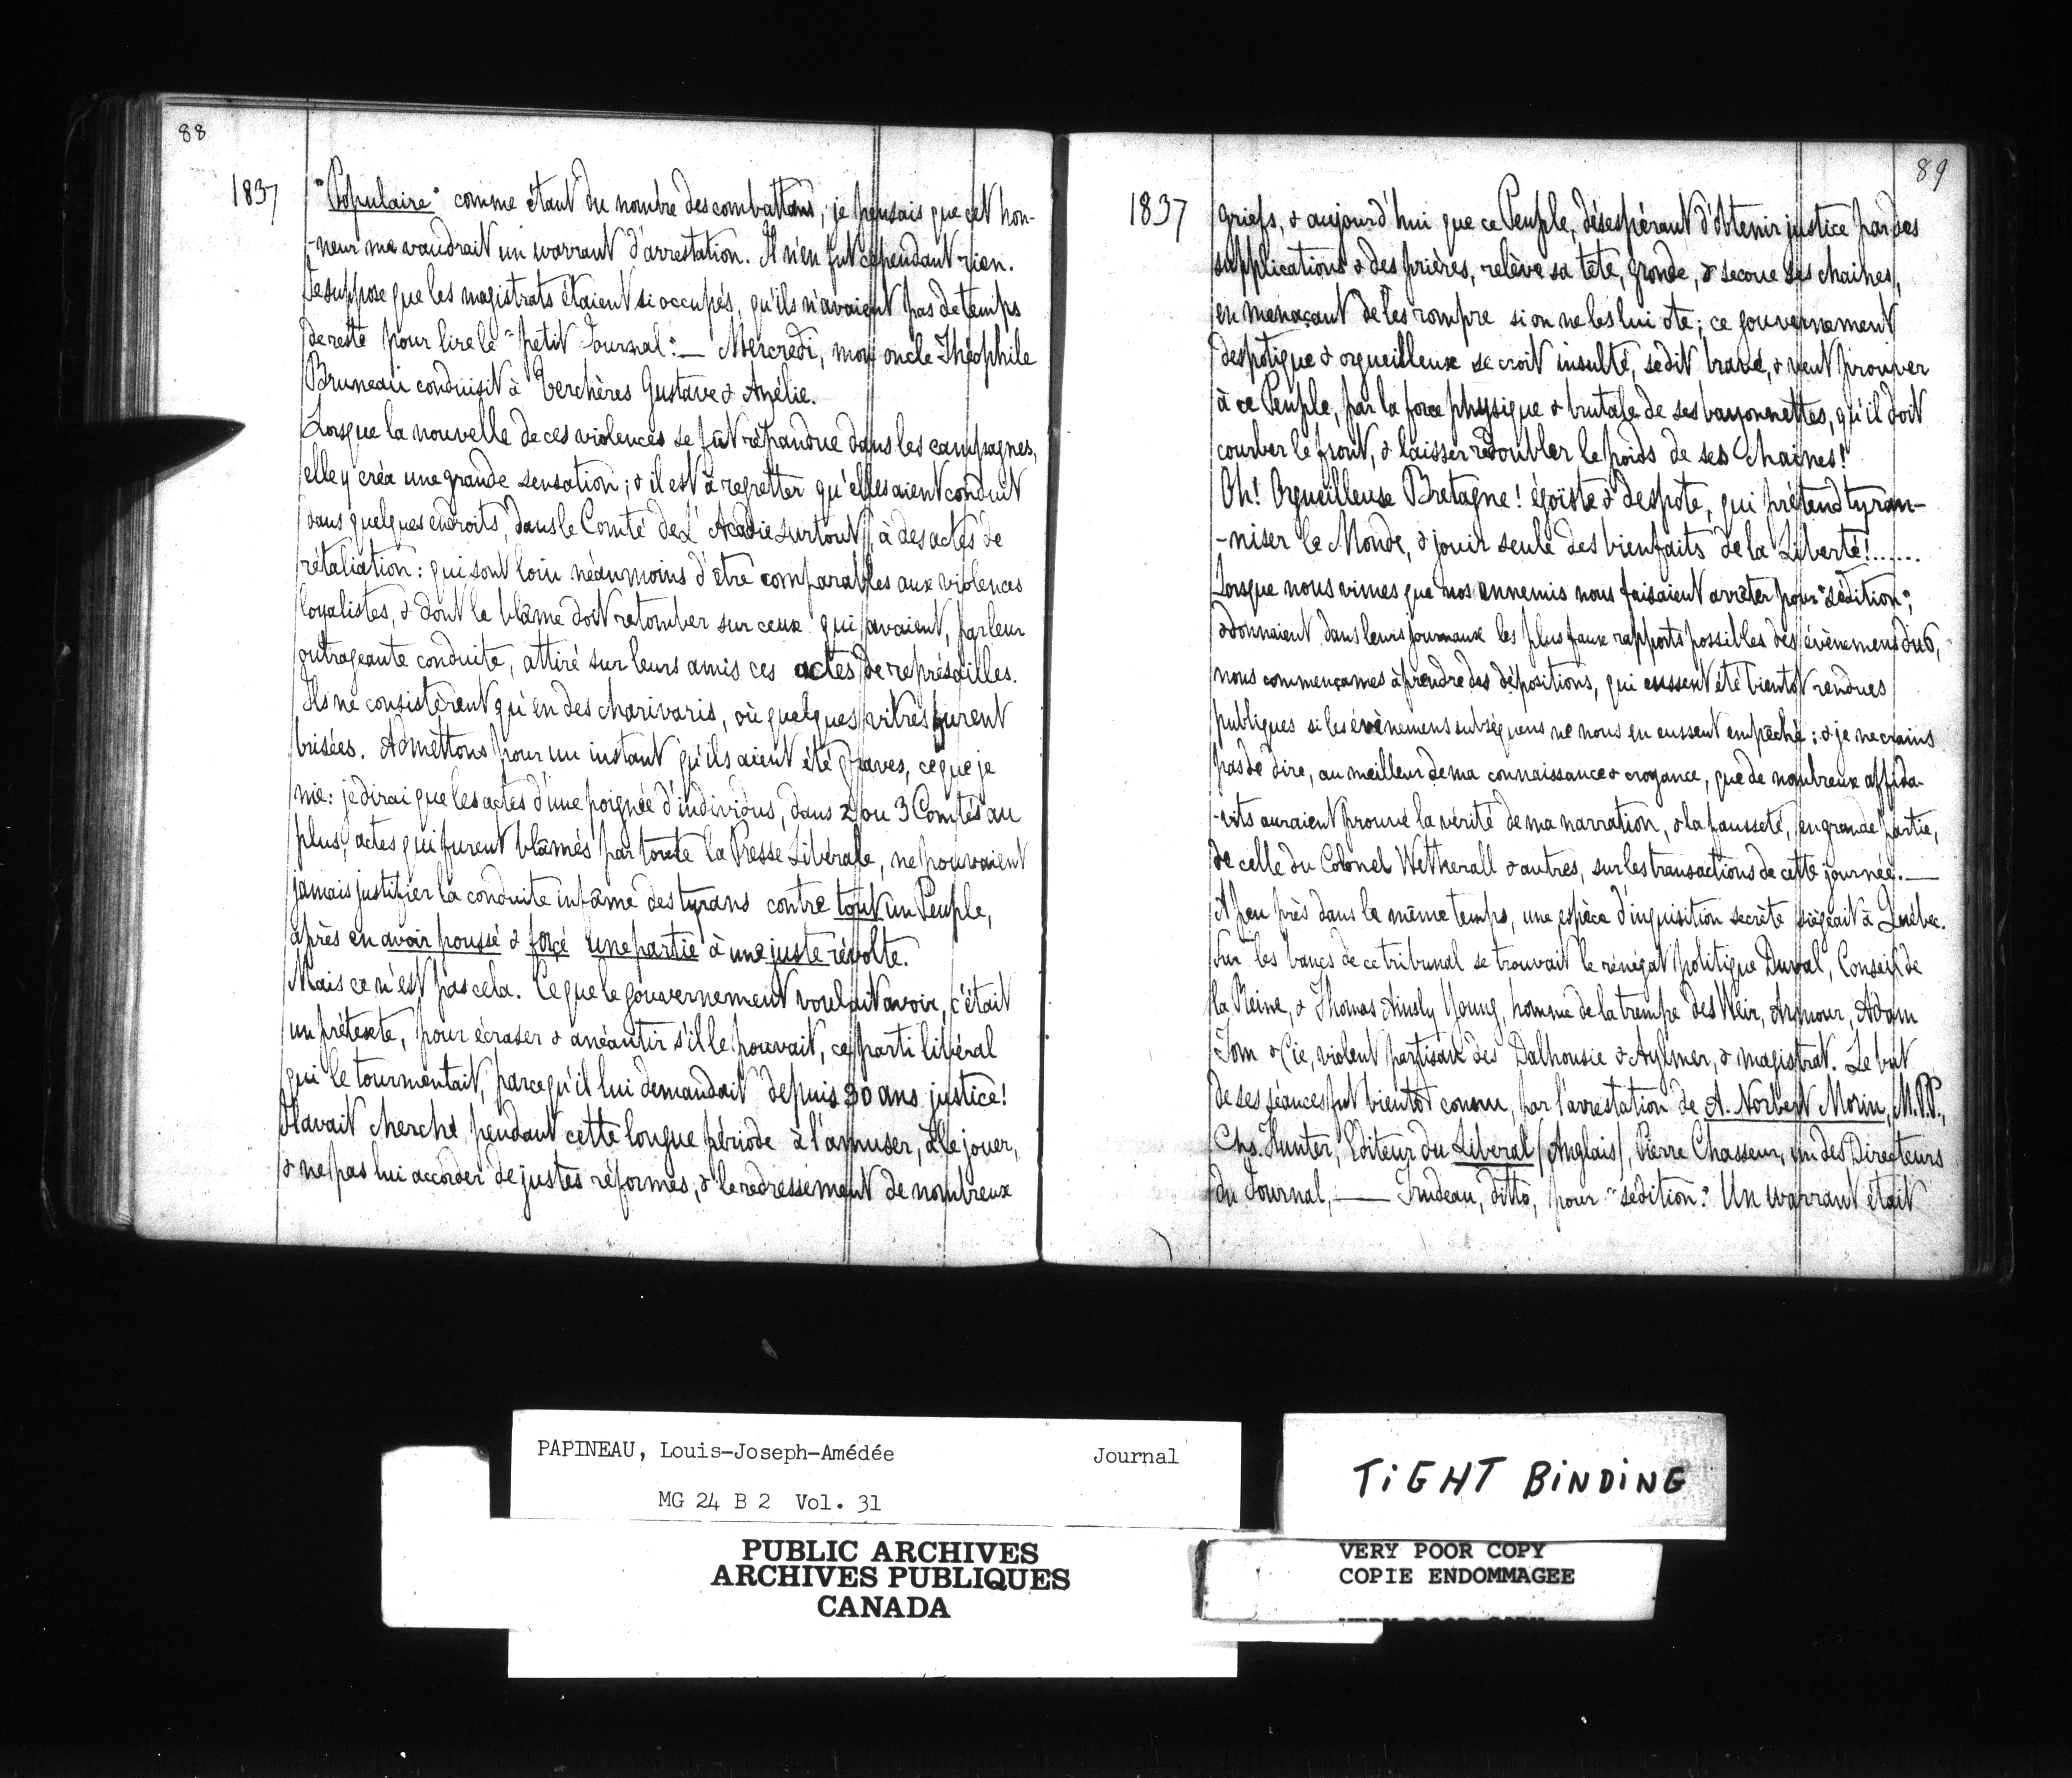 88
1837
"Populaire" comme étant du nombre des combattans, je pensais que cet hon-
-neur me vaudrait un warrant d'arrestation. Il n'en fut cependant rien.
Je suppose que les magistrats étaient si occupés, qu'ils n'avaient pas de temps
de reste pour lire le "petit Journal". — Mercredi, mon oncle Théophile
Bruneau conduisit à Verchères Gustave & Azélie.
Lorsque la nouvelle de ces violences se fût répandue dans les campagnes,
elle y créa une grande sensation; & il est à regretter qu'elles aient conduit
dans quelques endroits, dans le Comté de L'Acadie surtout, à des actes de
rétaliation: qui sont loin néanmoins d'être comparables aux violences
loyalistes, & dont le blâme doit retomber sur ceux qui avaient, par leur
outrageante conduite, attiré sur leurs amis ces actes de représailles.
Ils ne consistèrent qu'en des charivaris, où quelques vitres furent
brisées. Admettons pour un instant qu'ils aient été graves, ce que je
nie: je dirai que les actes d'une poignée d'individus, dans 2 ou 3 Comtés au
plus, actes qui furent blâmés par toute la Presse Libérale, ne pouvaient
jamais justifier la conduite infâme des tyrans contre tout un Peuple,
après en avoir poussé & forcé une partie à une juste révolte.
Mais ce n'est pas cela. Ce que le gouvernement voulait avoir, c'était
un prétexte, pour écraser & anéantir s'il le pouvait, ce parti libéral
qui le tourmentait, parce qu'il lui demandait depuis 30 ans justice!
Il avait cherché, pendant cette longue période à l'amuser, à le jouer,
& ne pas lui accorder de justes réformes, & le redressement de nombreux
89
1837
griefs, & aujourd'hui que ce Peuple, désespérant d'obtenir justice par des
supplications & des prières, relève sa tête, gronde, & secoue ses chaines,
en menaçant de les rompre si on ne les lui ote; ce gouvernement
despotique & orgueilleux se croit insulté, se dit bravé, & veut prouver
à ce Peuple, par la force physique & brutale de ses bayonnettes, qu'il doit
courber le front, & laisser redoubler le poids de ses chaines!
Oh! Orgueilleuse Bretagne! égoïste & despote, qui prétend tyran-
-niser le Monde, & jouir seule des bienfaits de la Liberté!......
Lorsque nous vimes que nos ennemis nous faisaient arrêter pour "sédition",
& donnaient dans leurs journaux les plus faux rapports possibles des évènemens du 6,
nous commençames à prendre des dépositions, qui eussent été bientôt rendues
publiques si les évènemens subséquens ne nous en eussent empêché: & je ne crains
pas de dire, au meilleur de ma connaissance & croyance, que de nombreux affida-
-vits auraient prouvé la vérité de ma narration, & la fausseté, en grande partie,
de celle du Colonel Wetherall & autres, sur les transactions de cette journée. —
A peu près dans le même temps, une espèce d'inquisition secrète siégeait à Québec.
Sur les bancs de ce tribunal se trouvait le rénégat politique Duval, Conseil de
la Reine, & Thomas Ainsly Young, homme de la trempe des Weir, Armour, Adam
Tom & Cie, violent partisan des Dalhousie & Aylmer, & magistrat. Le but
de ses séances fut bientôt connu, par l'arrestation de A. Norbert Morin, M.P.P.,
Chs. Hunter, Editeur du Liberal (Anglais), Pierre Chasseur, un des Directeurs
du Journal, —— Trudeau, ditto, pour "sédition." Un warrant était
PAPINEAU, Louis-Joseph-Amédée Journal
MG 24 B 2 Vol. 31
PUBLIC ARCHIVES
ARCHIVES PUBLIQUES
CANADA
TIGHT BINDING
VERY POOR COPY
COPIE ENDOMMAGEE
VERY POOR COPY